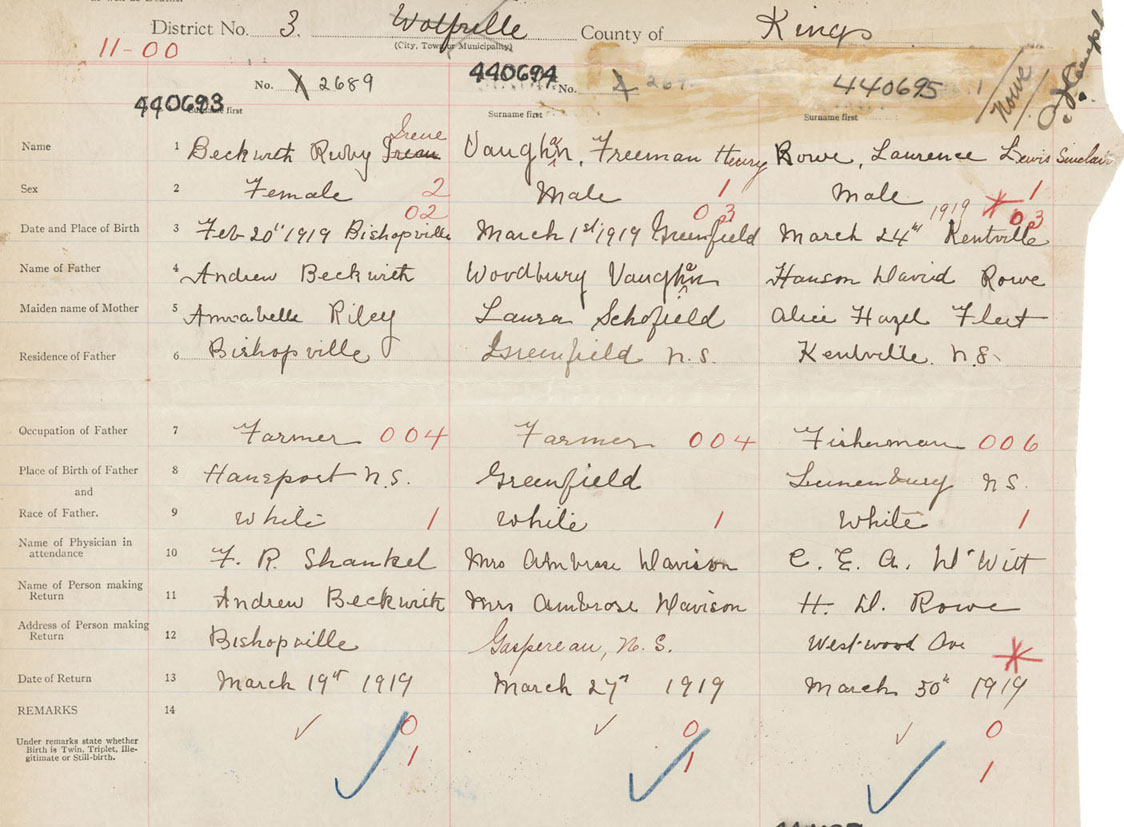 District No. 3. Wolfville County of Kings
(City, Town or Municipality)
11-00
No. X 2689 440694 No. X 267 440695 1 Rowe
440693
Surname first Surname first Surname first
Irene
Name 1 Beckwith Ruby Irean Vaughan, Freeman Henry Rowe, Laurence Lewis Sinclair
Sex 2 Female 2 Male 1 Male 1
02 03 1919 * 03
Date and Place of Birth 3 Feb 20th 1919 Bishopville March 1st 1919 Greenfield March 24th Kentville
Name of Father 4 Andrew Beckwith Woodbury Vaughan Hanson David Rowe
Maiden name of Mother 5 Annabelle Riley Laura Schofield Alice Hazel Fleet
Residence of Father 6 Bishopville Greenfield N.S. Kentville. N.S.
Occupation of Father 7 Farmer 004 Farmer 004 Fisherman 006
Place of Birth of Father 8 Hansport N.S. Greenfield Lunenburg N.S.
and
Race of Father. 9 White 1 White 1 White 1
Name of Physician in
attendance 10 F. R. Shankel Mrs Ambrose Davison C. E. A. DeWitt
Name of Person making
Return 11 Andrew Beckwith Mrs Ambrose Davison H. D. Rowe
Address of Person making
Return 12 Bishopville Gaspereau, N.S. Westwood Ave *
Date of Return 13 March 19th 1919 March 27th 1919 March 30th 1919
REMARKS 14 ✓ 0 ✓ 0 ✓ 0
Under remarks state whether
Birth is Twin, Triplet, Ille-
gitimate or Still-birth.
✓ 1 ✓ 1 ✓ 1